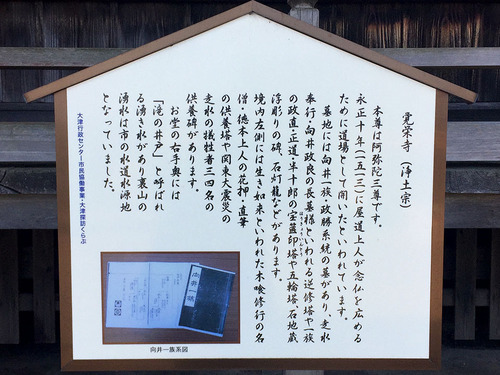 覚栄寺 (浄土宗)
本尊は阿弥陀三尊です。
永正十年(一五一三)に屋道上人が念仏を広める
ために道場として開いたといわれています。
墓地には向井一族・政勝系統の墓があり、走水
奉行・向井政良の長墓様といわれる逆修塔や一族
の政直・正道・半十郎の宝篋印塔や五輪塔、石地蔵
浮彫りの碑、石灯籠などがあります。
境内左側には生き如来といわれた木喰修行の名
僧・徳本上人の花押、直筆
の供養塔や関東大震災の
走水の犠牲者三四名の
供養碑があります。
お堂の右手奥には
「滝の井戸」と呼ばれ
る湧き水があり裏山の
湧水は市の水道水源地
となっていました。
大津行政センター市民協働事業・大津探訪くらぶ
向井一族系図